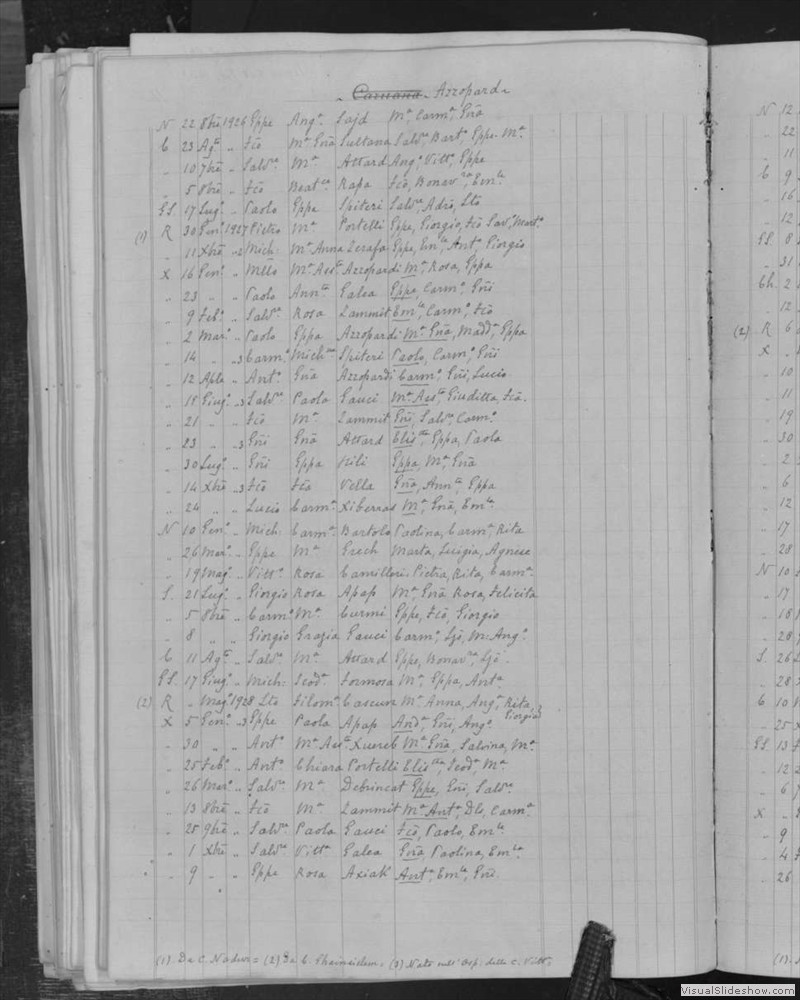 Caruana Azzopardi
N 22 8bre 1926 Eppe Angª. Sajd Mª, Carmª, Gnã
C 23 Agº „ Fcõ Mª Gnã Sultana Salvʳᵉ, Bartº, Eppe, Mª
„ 10 7bre „ Salvʳᵉ Mª Attard Angº, Vittª, Eppe
„ 5 8bre „ Fcõ Beatᶜᵉ Rapa Fcõ, Bonavʳᵃ, Emˡᵃ
GS. 17 Lugº „ Paolo Eppa Spiteri Salvʳᵉ, Adeo, Sto
(1) R 30 Genº 1927 Pietro Mª Portelli Eppe, Giorgio, Fcõ Savº, Martº
„ 11 Xbre „ Mich: Mª Anna Zerafa Eppe, Emˡᵉ, Antº Giorgio
X 16 Genº „ Mtto Mª Assᵗᵃ Azzopardi Mª, Rosa, Eppa
„ 23 „ „ Paolo Annᵗᵃ Galea Eppe, Carmº, Gnĩ
„ 9 Febº „ Salvʳᵉ Rosa Zammit Emˡᵉ, Carmº, Fcõ
„ 2 Marº „ Paolo Eppa Azzopardi Mª Gnã, Maddª, Eppa
„ 14 „ „3 Carmº Michˡᵃ Spiteri Paolo, Carmº, Gnĩ
„ 12 Aple „ Antº Gnã Azzopardi Carmº, Gnĩ, Lucio
„ 15 Giugº „3 Salvʳᵉ Paola Gauci Mª Assᵗᵃ, Giuditta, Fcã
„ 21 „ „ Fcõ Mª Zammit Gnĩ, Salvʳᵉ, Carmº
„ 23 „ „3 Gnĩ Gnã Attard Elisᵗᵗᵃ, Eppa, Paola
„ 30 Lugº „ Gnĩ Eppa Vili Eppa, Mª, Gnã
„ 14 Xbre „3 Fcõ Fcã Vella Gnã, Annᵗᵃ, Eppa
„ 24 „ „ Lucio Carmª Xiberras Mª, Gnã, Emˡᵃ
N 10 Genº „ Mich: Carmª Bartolo Paolina, Carmª, Rita
„ 26 Marº „ Eppe Mª Grech Marta, Luigia, Agnese
„ 19 Magº „ Vittº Rosa Camilleri Pietra, Rita, Carmª
S. 21 Lugº „ Giorgio Rosa Apap Mª Gnã Rosa, Felicita
„ 5 8bre „ Carmº Mª Curmi Eppe, Fcõ, Giorgio
„ 8 „ „ Giorgio Grazia Gauci Carmº, Ljõ, M: Angº
C 11 Agº „ Salvʳᵉ Mª Attard Eppe, Bonavʳᵃ, Ljõ
GS. 17 Giugº „ Mich: Teodª Formosa Mª, Eppa, Antª
(2) R „ Magº 1928 Sto Filomª Cascun Mª Anna, Angª, Rita, Giorgia
X 5 Genº „3 Eppe Paola Apap Andª Gnĩ, Angº
„ 30 „ „ Antº Mª Assᵗᵃ Xuereb Mª Gnã, Salvina, Mª
„ 25 Febº „ Antº Chiara Portelli Elisᵗᵗᵃ, Teodª, Mª
„ 26 Marº „ Salvʳᵉ Mª Debrincat Eppe, Gnĩ, Salvʳᵉ
„ 13 8bre „ Fcõ Mª Zammit Mª Antª, Dlr, Carmª
„ 25 9bre „ Salvʳᵉ Paola Gauci Fcõ, Paolo, Emˡᵉ
„ 1 Xbre „ Salvʳᵉ Vittª Galea Gnã Paolina, Emˡᵃ
„ 9 „ „ Eppe Rosa Axiak Antº, Emˡᵉ, Gnĩ
(1). Da C. Nadur = (2) Da C. = (3) Nato nell' Osp: della C. Vittª.
N 12
22
11
C 9
16
12
GS 8
31
Ch. 2
12
(2) R 6
X
10
11
19
30
2
6
12
17
28
N 10
17
18
28
S. 26
28
C 10
25
GS. 13
12
6
X
9
4
26
(1).
VisualSlideshow.com